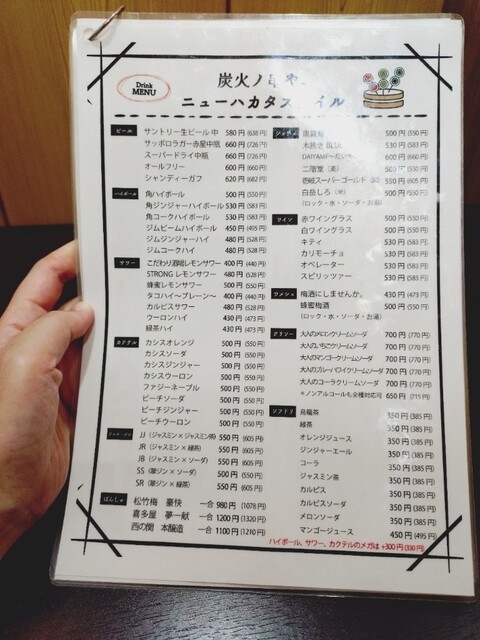 Drink
MENU
炭火ノ串や
ニューハカタスタイル
ビール
サントリー生ビール 中 580円(638円)
サッポロラガー赤星中瓶 660円(726円)
スーパードライ中瓶 660円(726円)
オールフリー 600円(660円)
シャンディーガフ 620円(682円)
ハイボール
角ハイボール 500円(550円)
角ジンジャーハイボール 530円(583円)
角コークハイボール 530円(583円)
ジムビームハイボール 450円(495円)
ジムジンジャーハイ 480円(528円)
ジムコークハイ 480円(528円)
サワー
こだわり酒場レモンサワー 400円(440円)
STRONG レモンサワー 480円(528円)
蜂蜜レモンサワー 500円(550円)
タコハイ〜プレーン〜 400円(440円)
カルピスサワー 480円(528円)
ウーロンハイ 430円(473円)
緑茶ハイ 430円(473円)
カクテル
カシスオレンジ 500円(550円)
カシスソーダ 500円(550円)
カシスジンジャー 500円(550円)
カシスウーロン 500円(550円)
ファジーネーブル 500円(550円)
ピーチソーダ 500円(550円)
ピーチジンジャー 500円(550円)
ピーチウーロン 500円(550円)
JJ(ジャスミン×ジャスミン茶) 550円(605円)
JR(ジャスミン×緑茶) 550円(605円)
JB(ジャスミン×ソーダ) 550円(605円)
SS(翠ジン×ソーダ) 500円(550円)
SR(翠ジン×緑茶) 550円(605円)
ぽんしゅ
松竹梅 豪快 一合 980円(1078円)
喜多屋 夢一献 一合 1200円(1320円)
西の関 本醸造 一合 1100円(1210円)
500円(550円)
木挽き 530円(583円)
DAIYAME〜だいやめ 600円(660円)
二階堂(麦) 500円(550円)
壱岐スーパーゴールド 500円(550円)
白岳しろ(米) 500円(550円)
(ロック・水・ソーダ・お湯)
ワイン
赤ワイングラス 500円(550円)
白ワイングラス 500円(550円)
キティ 530円(583円)
カリモーチョ 530円(583円)
オペレーター 530円(583円)
スピリッツァー 530円(583円)
ウメシュ
梅酒にしませんか。 430円(473円)
蜂蜜梅酒 500円(550円)
(ロック・水・ソーダ・お湯)
クリソー
大人のメロンクリームソーダ 700円(770円)
大人のいちごクリームソーダ 700円(770円)
大人のマンゴークリームソーダ 700円(770円)
大人のブルーハワイクリームソーダ 700円(770円)
大人のコーラクリームソーダ 700円(770円)
*ノンアルコールも全種対応可 650円(715円)
ソフドリ
烏龍茶 350円(385円)
緑茶 350円(385円)
オレンジジュース 350円(385円)
ジンジャーエール 350円(385円)
コーラ 350円(385円)
ジャスミン茶 350円(385円)
カルピス 350円(385円)
カルピスソーダ 350円(385円)
メロンソーダ 350円(385円)
マンゴージュース 450円(495円)
ハイボール、サワー、カクテルのメガは+300円(330円)